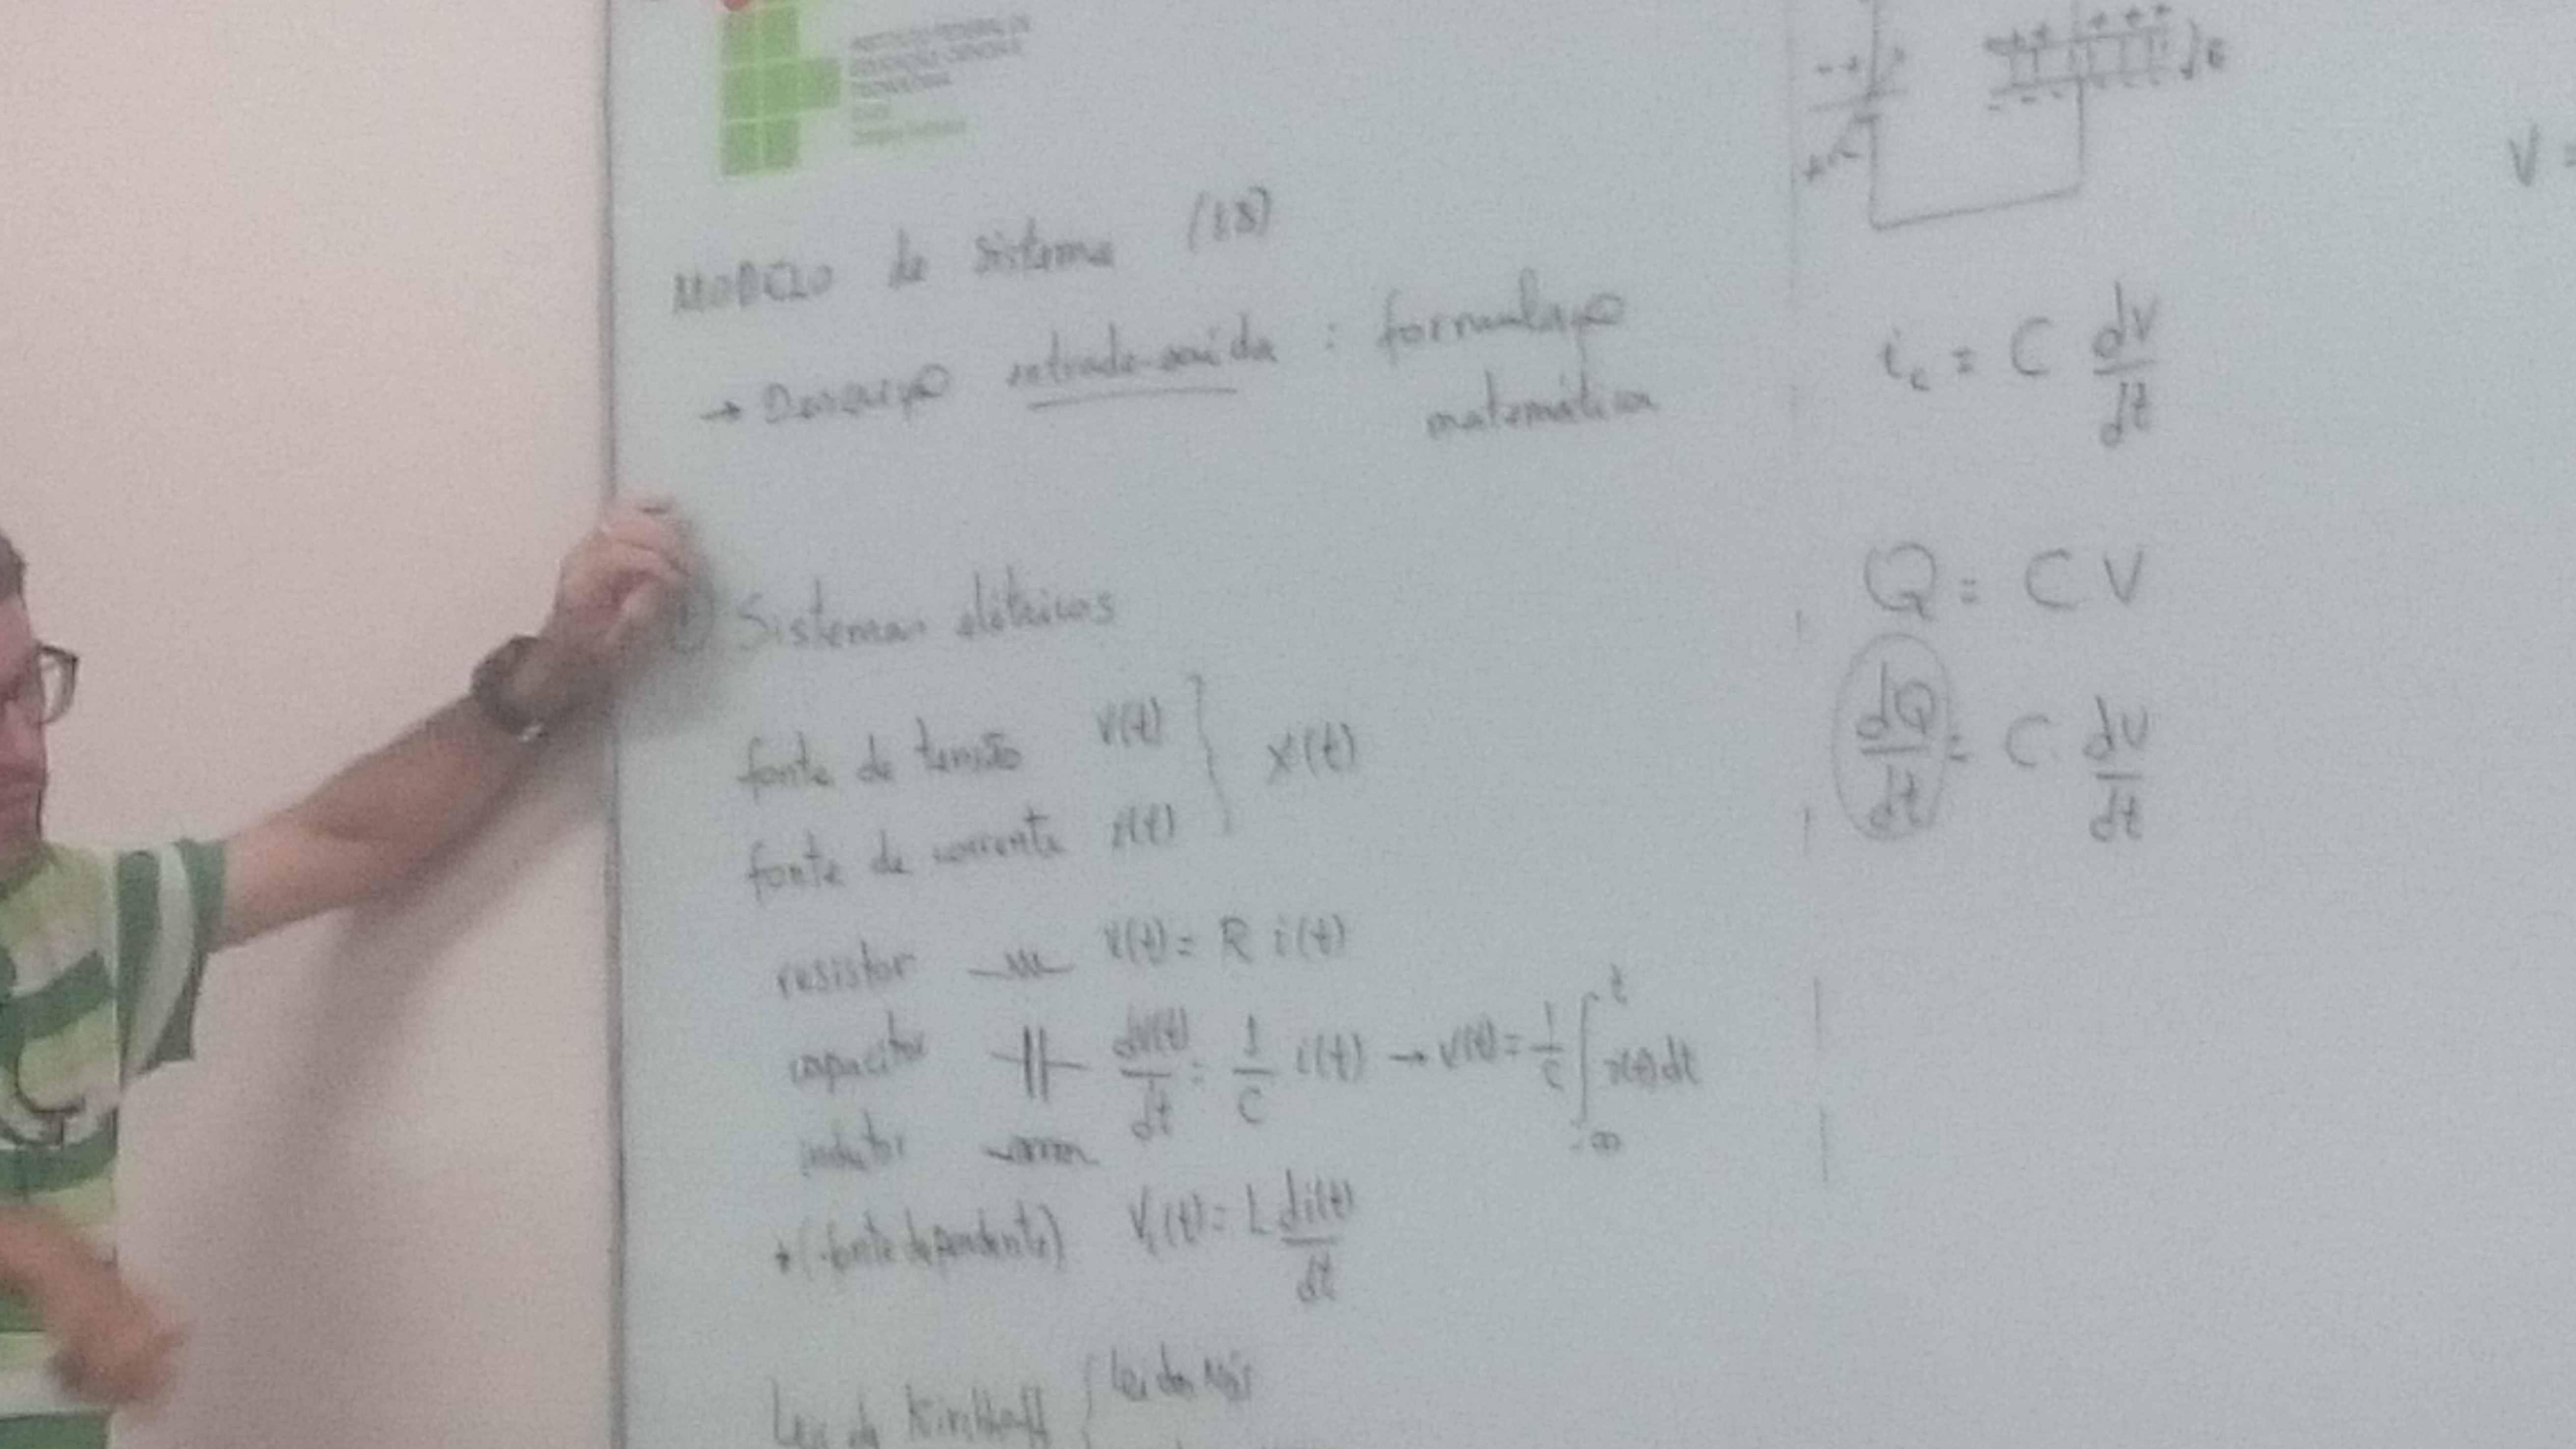 INSTITUTO FEDERAL DE
EDUCAÇÃO, CIÊNCIA E
TECNOLOGIA
MODELO de sistema (1.8)
→ Descrição entrada-saída : formulação
matemática
Sistemas elétricos
fonte de tensão v(t) } x(t)
fonte de corrente i(t)
resistor v(t) = R i(t)
capacitor dv(t)/dt = 1/C i(t) → v(t) = 1/C ∫ t -∞ i(t) dt
indutor
+ (fonte dependente) V(t) = L di(t)/dt
Leis de Kirchhoff { Lei dos Nós
i_c = C dV/dt
Q = C V
dQ/dt = C dV/dt
V =